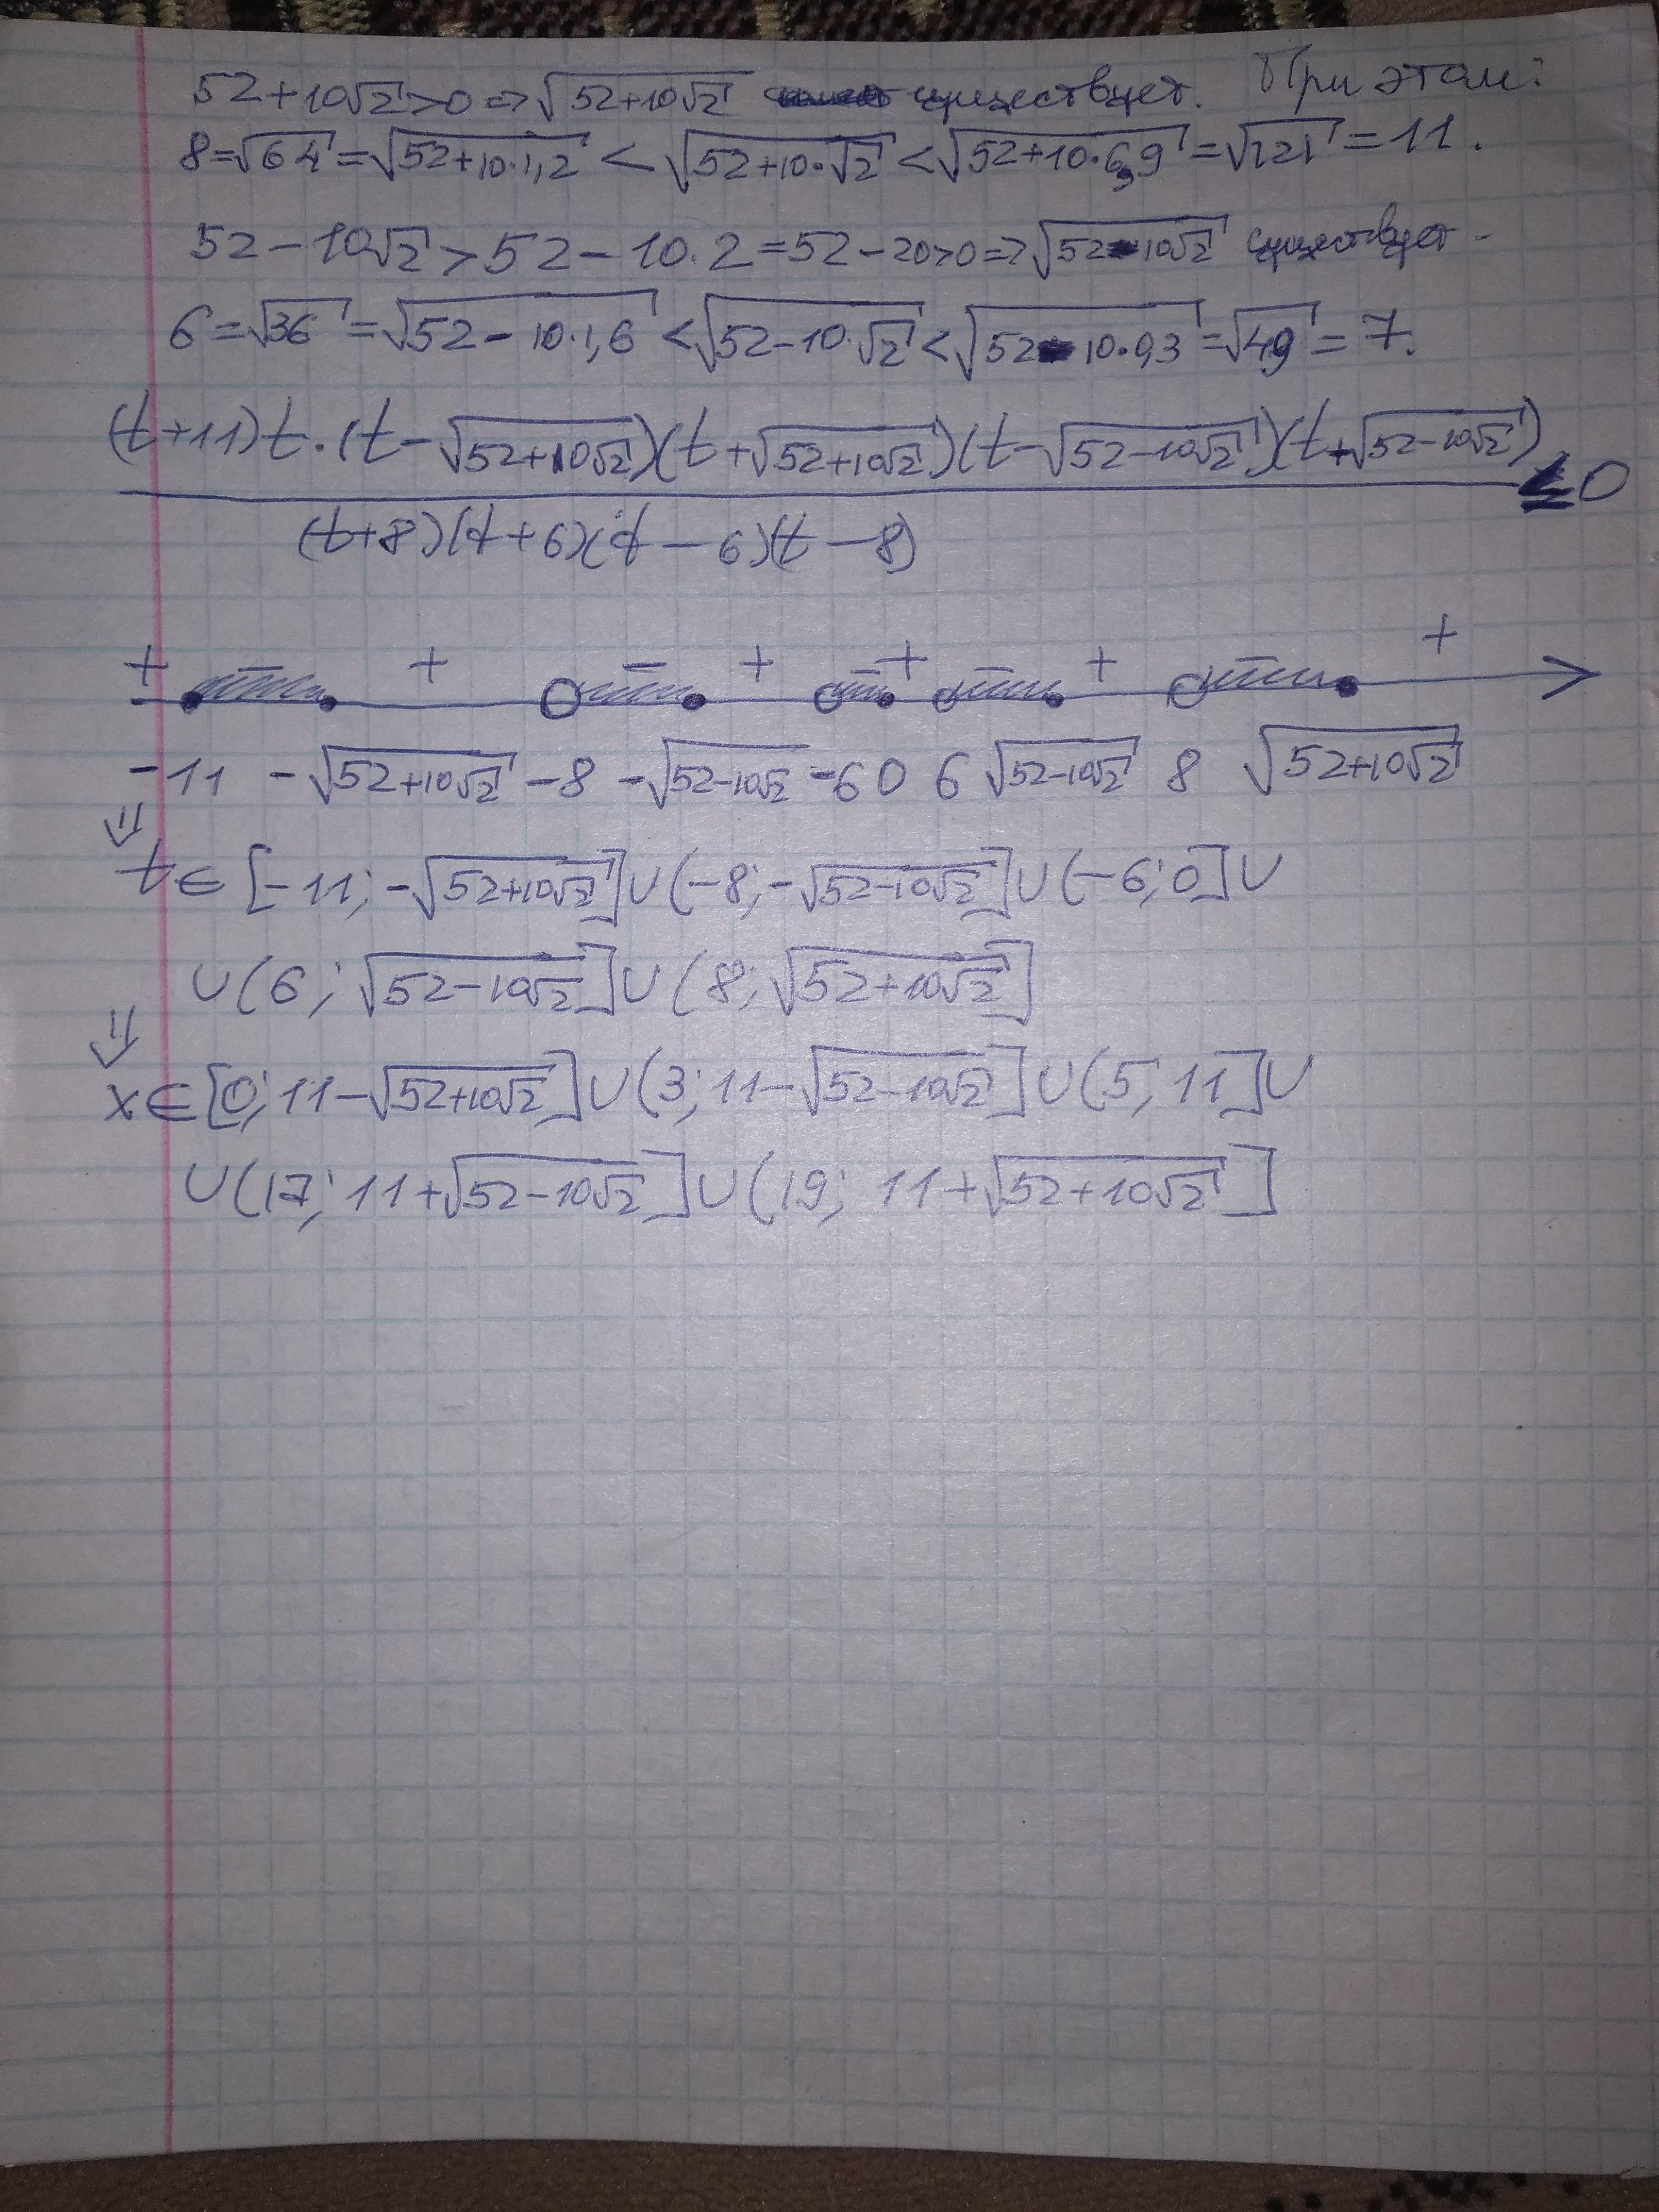 52+10√2>0⇒√(52+10√2) существует. При этом:
8=√64=√(52+10·1,2)<√(52+10·√2)<√(52+10·6,9)=√121=11.
52-10√2>52-10.2=52-20>0⇒√(52-10√2) существует.
6=√36=√(52-10·1,6)<√(52-10·√2)<√(52-10·0,3)=√49=7.
(t+11)t·(t-√(52+10√2))(t+√(52+10√2))(t-√(52-10√2))(t+√(52-10√2))
≤0
(t+8)(t+6)(t-6)(t-8)
+ - + - + - + - + - +
-11 -√(52+10√2) -8 -√(52-10√2) -6 0 6 √(52-10√2) 8 √(52+10√2)
⇓
t∈[-11;-√(52+10√2)]∪(-8;-√(52-10√2)]∪(-6;0]∪
∪(6;√(52-10√2)]∪(8;√(52+10√2)]
⇓
x∈[0;11-√(52+10√2)]∪(3;11-√(52-10√2)]∪(5;11]∪
∪(17;11+√(52-10√2)]∪(19;11+√(52+10√2)]